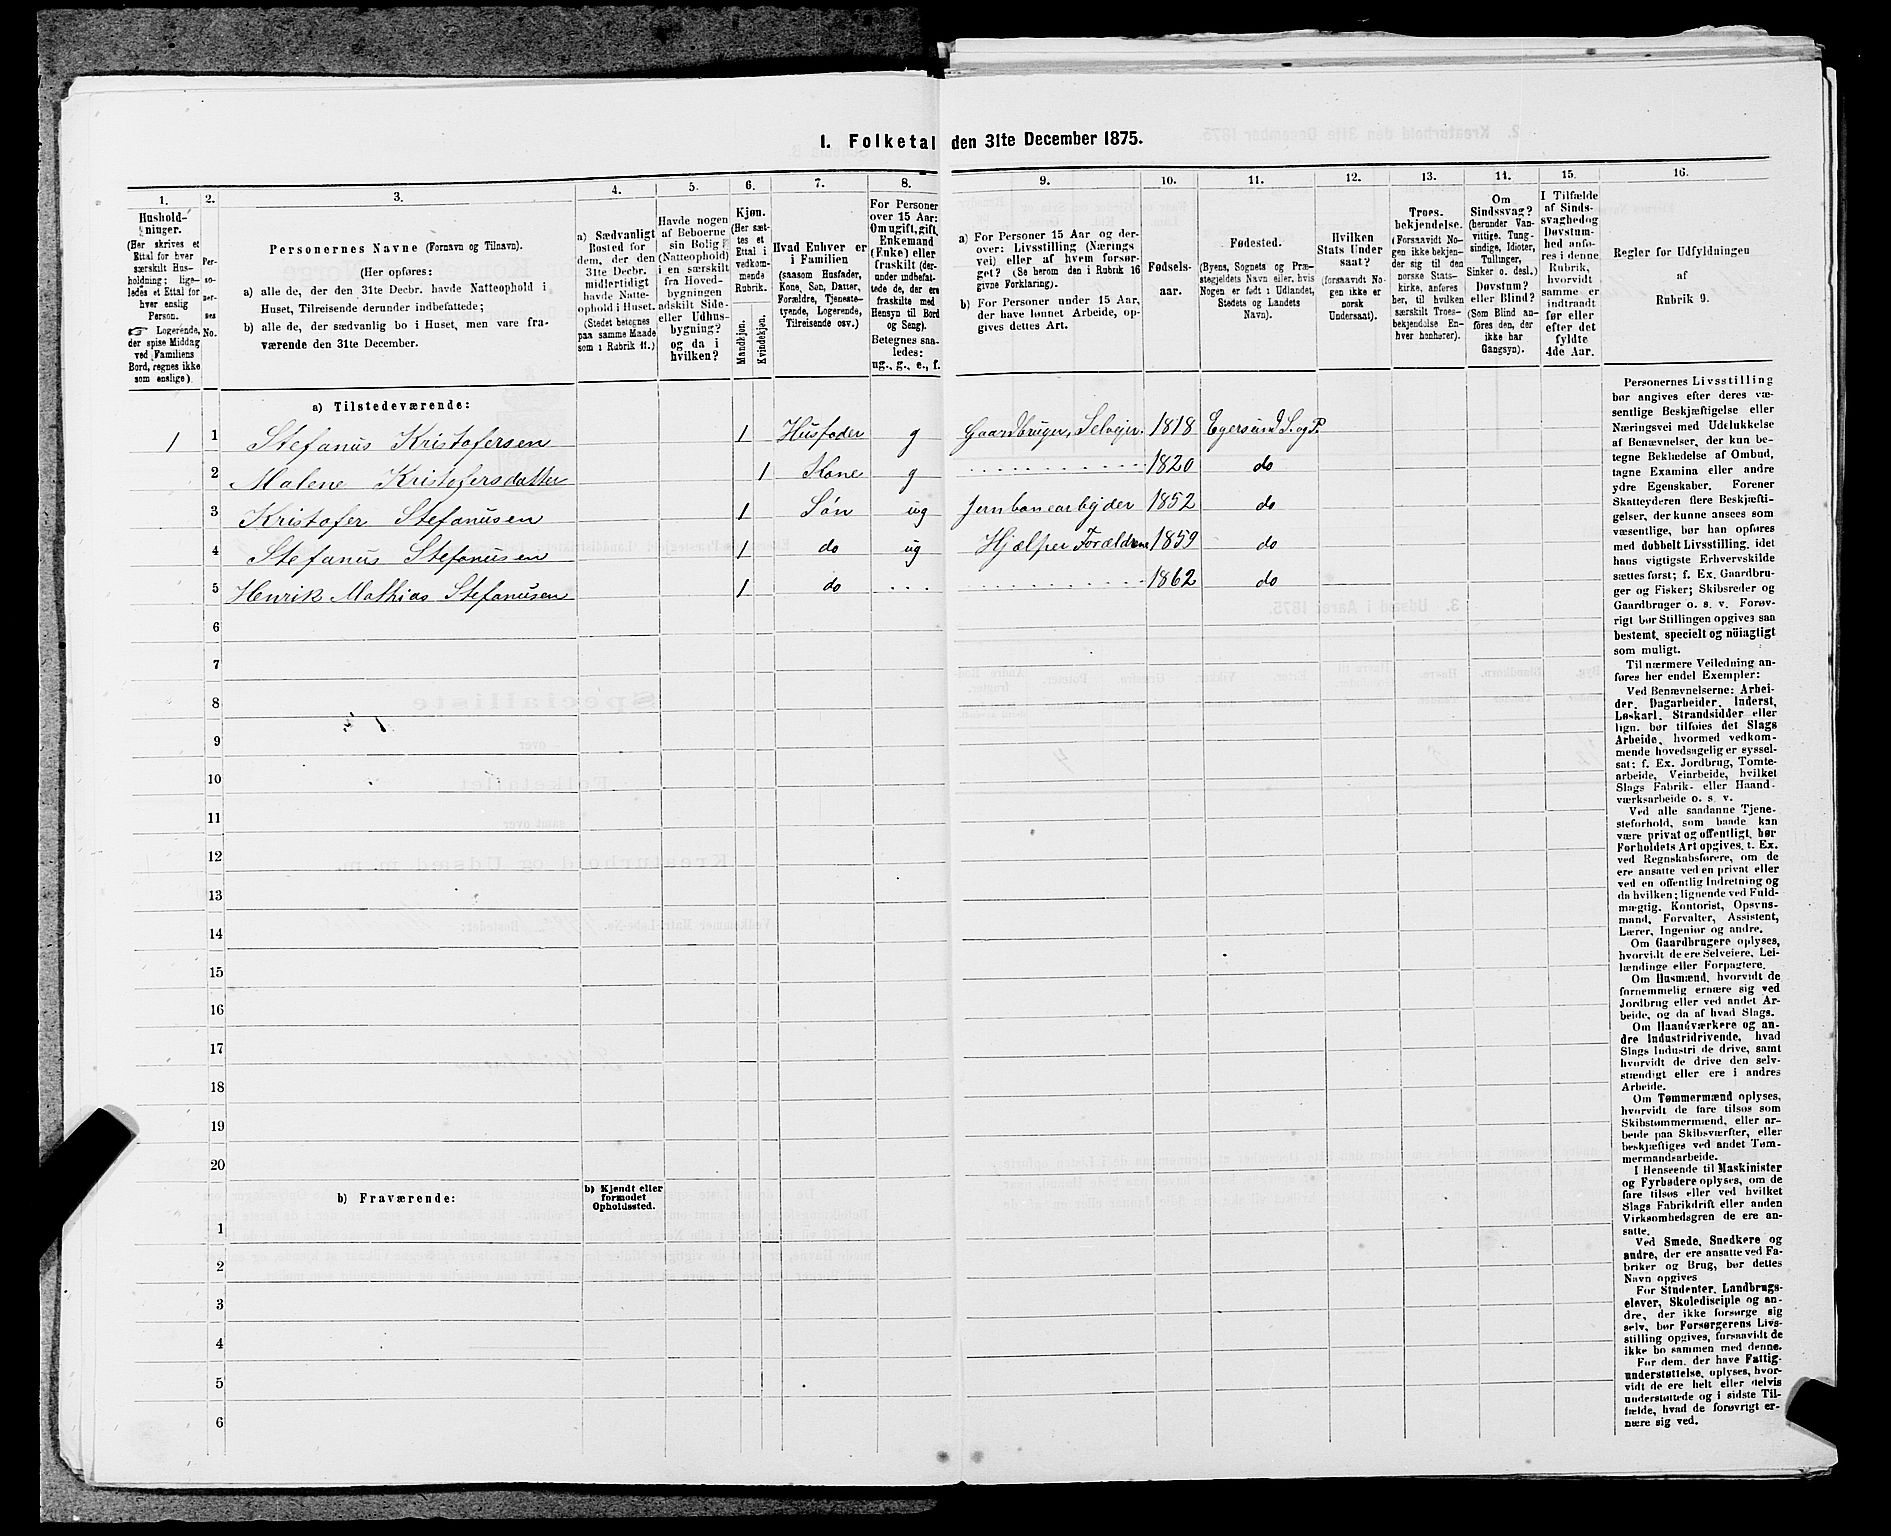 1. Folketal den 31te December 1875.
1. 2. 3. 4. 5. 6. 7. 8. 9. 10. 11. 12. 13. 14. 15. 16.
Hushold-
ninger.
(Her skrives et
Ettal for hver
særskilt Hus-
holdning; lige-
ledes et Ettal for
hver enslig
Person.
☞ Logerende,
der spise Middag
ved Familiens
Bord, regnes ikke
som enslige).
Per-
so-
ner-
nes
No.
Personernes Navne (Fornavn og Tilnavn).
(Her opføres:
a) alle de, der den 31te Decbr. havde Natteophold i
Huset, Tilreisende derunder indbefattede;
b) alle de, der sædvanlig bo i Huset, men vare fra-
værende den 31te December.
a) Sædvanligt
Bosted for
dem, der den
31te Decbr.
midlertidigt
havde Natte-
ophold i Huset.
(Stedet betegnes
paa samme Maade
som i Rubrik 11.)
Havde nogen
af Beboerne
sin Bolig
(Natteophold)
i en særskilt
fra Hoved-
bygningen
adskilt Side-
eller Udhus-
bygning?
og da i
hvilken?
Kjøn.
(Her sæt-
tes et
Ettal i
vedkom-
mende
Rubrik.
Mandkjøn.
Kvindekjøn.
Hvad Enhver er
i Familien
(saasom Husfader,
Kone, Søn, Datter,
Forældre, Tjeneste-
tyende, Logerende,
Tilreisende osv.)
For Personer
over 15 Aar:
Om ugift, gift,
Enkemand
(Enke) eller
fraskilt (der-
under indbefat-
tede de, der ere
fraskilte med
Hensyn til Bord
og Seng).
Betegnes saa-
ledes:
ug., g., e., f.
a) For Personer 15 Aar og der-
over: Livsstilling (Nærings
vei) eller af hvem forsør-
get? (Se herom den i Rubrik 16
givne Forklaring).
b) For Personer under 15 Aar,
der have lønnet Arbeide, op-
gives dettes Art.
Fødsels-
aar.
Fødested.
(Byens, Sognets og Præ-
stegjeldets Navn eller, hvis
Nogen er født i Udlandet,
Stedets og Landets
Navn).
Hvilken
Stats Under
saat?
(forsaavidt No-
gen ikke er
norsk
Undersaat).
Troes-
bekjendelse.
(Forsaavidt No-
gen ikke bekjen-
der sig til den
norske Stats-
kirke, anføres
her, til hvilken
særskilt Troes-
bekjendelse En-
hver henhører).
Om
Sindssvag?
(herunder Van-
vittige, Tung-
sindige, Idioter,
Tullinger,
Sinker o. desl.)
Døvstum?
eller Blind?
(Som Blind an-
føres den, der
ikke har
Gangsyn).
I Tilfælde
af Sinds-
svaghed og
Døvstum-
hed anfø-
res i denne
Rubrik,
hvorvidt
samme er
indtraadt
før eller
efter det
fyldte
4de Aar.
Regler for Udfyldningen
af
Rubrik 9.
a) Tilstedeværende:
1 1 Stefanus Kristofersen 1 Husfader g Gaardbruger, Selveier. 1818 Egersund S. og P.
2 Malene Kristofersdatter 1 Kone g 1820 do
3 Kristofer Stefanusen 1 Søn ug Jernbanearbeider 1852 do
4 Stefanus Stefanusen 1 do ug Hjælper Forældrene 1859 do
5 Henrik Mathias Stefanusen 1 do 1862 do
6
7
8
9
10
11
12
13
14
15
16
17
18
19
20
b) Fraværende:
b) Kjendt eller
formodet
Opholdssted.
1
2
3
4
5
6
Personernes Livsstilling
bør angives efter deres væ-
sentlige Beskjæftigelse eller
Næringsvei med Udelukkelse
af Benævnelser, der kun be-
tegne Beklædelse af Ombud,
tagne Examina eller andre
ydre Egenskaber. Forener
Skatteyderen flere Beskjæfti-
gelser, der kunne ansees som
væsentlige, bør han opføres
med dobbelt Livsstilling, idet
hans vigtigste Erhvervskilde
sættes først; f. Ex. Gaardbru-
ger og Fisker; Skibsreder og
Gaardbruger o. s. v. Forøv-
rigt bør Stillingen opgives saa
bestemt, specielt og nöiagtigt
som muligt.
Til nærmere Veiledning an-
føres her endel Exempler:
Ved Benævnelserne: Arbei-
der, Dagarbeider, Inderst,
Løskarl, Strandsidder eller
lign. bør tilføies det Slags
Arbeide, hvormed vedkom-
mende hovedsagelig er syssel-
sat; f. Ex. Jordbrug, Tomte-
arbeide, Veiarbeide, hvilket
Slags Fabrik- eller Haand-
værksarbeide o. s. v.
Ved alle saadanne Tjene-
steforhold, som baade kan
være privat og offentligt, bør
Forholdets Art opgives, f. Ex.
ved Regnskabsførere, om de
ere ansatte ved en privat eller
ved en offentlig Indretning og
da hvilken; lignende ved Fuld-
mægtig, Kontorist, Opsyns-
mand, Forvalter, Assistent,
Lærer, Ingeniør og andre.
Om Gaardbrugere oplyses,
hvorvidt de ere Selveiere, Lei-
lændinge eller Forpagtere.
Om Husmænd, hvorvidt de
fornemmelig ernære sig ved
Jordbrug eller ved andet Ar-
beide, og da af hvad Slags.
Om Haandværkere og an-
dre Industridrivende, hvad
Slags Industri de drive, samt
hvorvidt de drive den selv-
stændigt eller ere i andres
Arbeide.
Om Tømmermænd oplyses,
hvorvidt de fare tilsøs som
Skibstømmermænd, eller ar-
beide paa Skibsværfter, eller
beskjæftiges ved andet Tøm-
mermandsarbeide.
I Henseende til Maskinister
og Fyrbødere oplyses, om de
fare tilsøs eller ved hvilket
Slags Fabrikdrift eller anden
Virksomhedsgren de ere an-
satte.
Ved Smede, Snedkere og
andre, der ere ansatte ved Fa-
briker og Brug, bør dettes
Navn opgives
For Studenter, Landbrugs-
elever, Skoledisciple og an-
dre, der ikke forsørge sig
selv, bør Forsørgerens Livs-
stilling opgives, forsaavidt de
ikke bo sammen med denne.
For dem, der have Fattig-
understøttelse, oplyses, hvor-
vidt de ere helt eller delvis
understøttede og i sidste Til-
fælde, hvad de forøvrigt er-
nære sig ved.